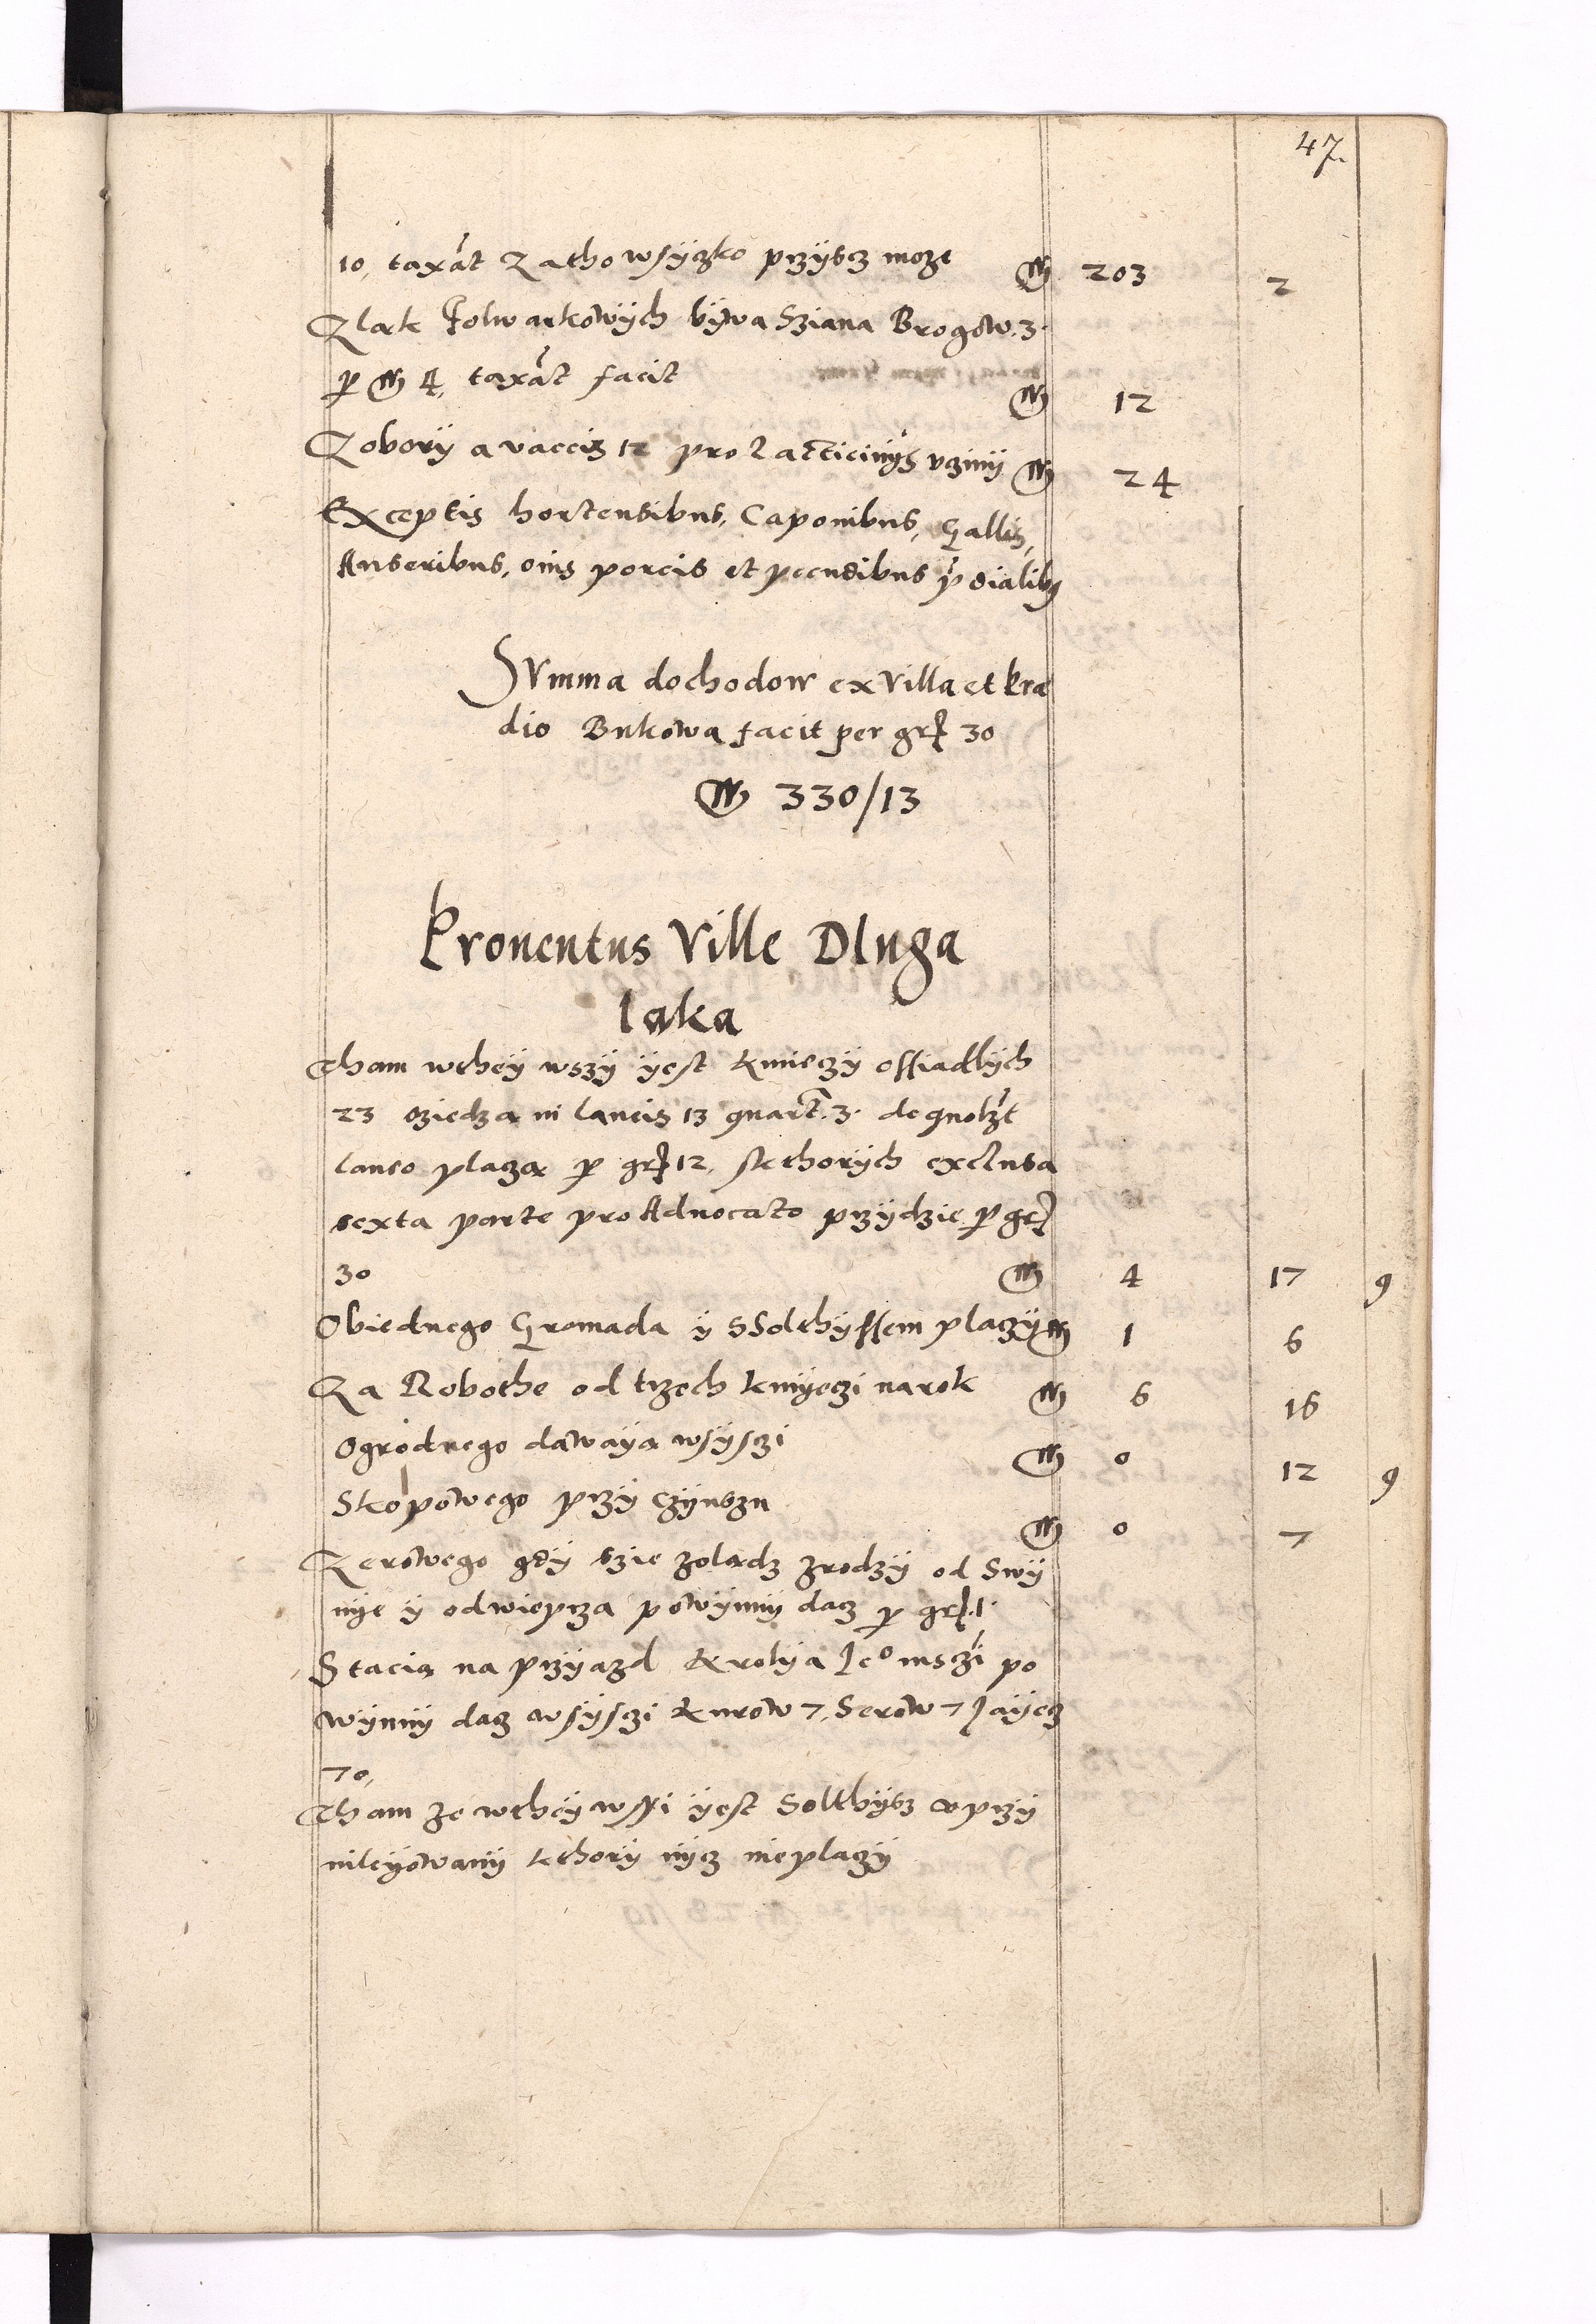 47.
10, taxãt Zatho wsÿczko przÿscz moze ₥ 203 2
Zlak Folwarkowÿch bÿwa Sziana Brogow. 3.
p ₥ 4, taxãt facit ₥ 12
Zoborÿ a vaccis 12 pro Lacticinÿs vzinÿ ₥ 24
Exceptis hortensibus, Caponibus, Gallis,
Anseribus, ouis porcis et pecudibus p̃dialibꝫ
Summa dochodow ex Villa et Præ
dio Bukowa facit per grꝭ 30
₥ 330/13
Prouentus Ville Dluga
laka
Tham wtheÿ wszÿ ÿest kmieczÿ ossiadlÿch
23 sziedza ni laneis 13 quart. 3. de quolȝt
laneo placzą p grꝭ 12, sktthorÿch exclusa
sexta parte pro Aduocato przÿdzie p grꝭ
30 ₥ 4 17 9
Obiednego Gromada ÿ SSolthÿssem placzÿ ₥ 1 6
Za Robothe od trzech kmÿeczi narok ₥ 6 16
Ogrodnego dawaÿa wsÿsczi ₥ 0 12 9
Skopowego przÿ czÿnszu ₥ 0 7
Zerowego gdÿ szie zoladz zrodzÿ od Swÿ
nÿe ÿ odwieprza powÿnnÿ dacz p grꝭ. 1.
Stacia na przÿazd krolÿa Jeº msczi po
wÿnnÿ dacz wsÿsczi kurow 7, Serow 7 Jaÿecz
70,
Tham ze wtheÿ wssi ÿest Solthÿsz vprzÿ
uileÿowanÿ kthorÿ nÿcz nieplaczÿ